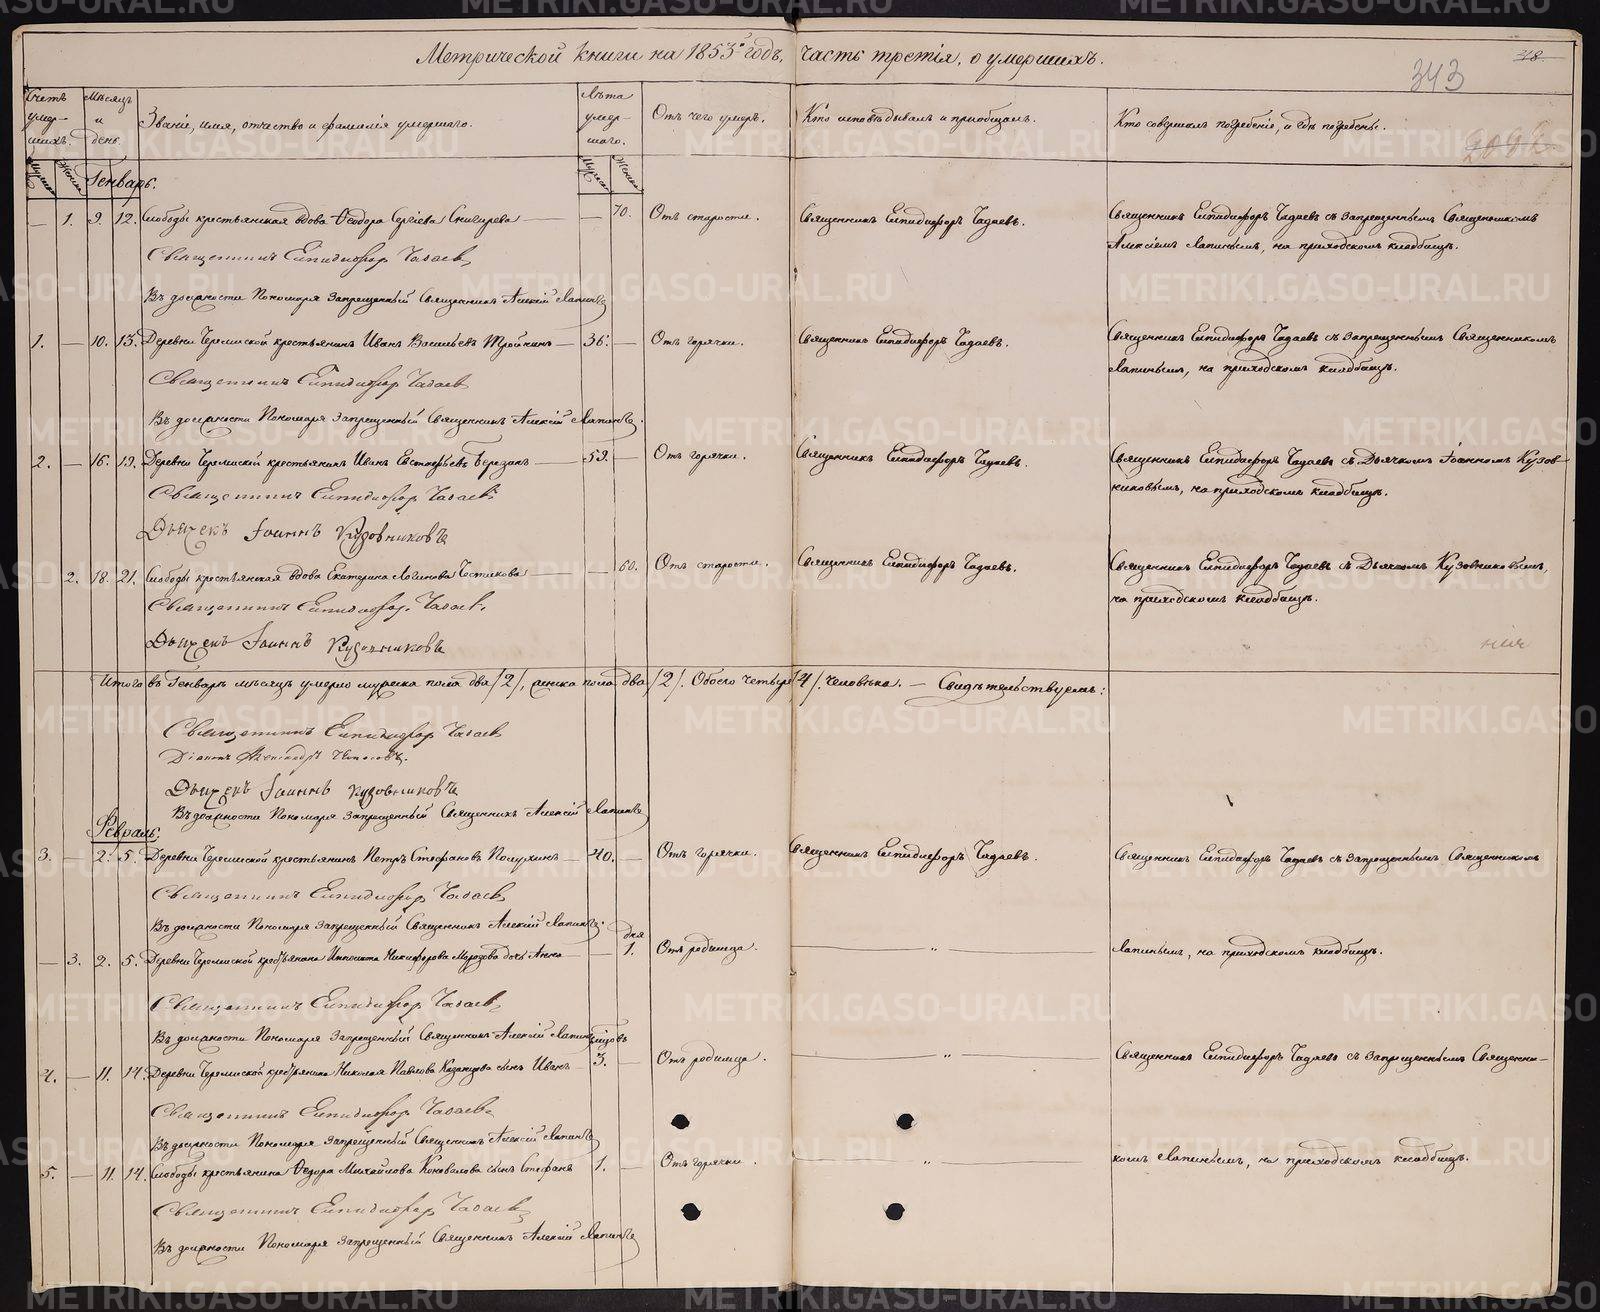 Метрической книги на 1853й годъ, часть третія, о умершихъ.
38.
343
Счетъ умер-шихъ.
Мѣсяцъ и день.
Званіе, имя, отчество и фамилія умершаго.
Лѣта умер-шаго.
Отъ чего умеръ.
Кто исповѣдывалъ и пріобщалъ.
Кто совершалъ погребеніе, и гдѣ погребены.
Мужеска Женска
Мужеска Женска
Генварь.
— 1. 9. 12. Слободы крестьянская вдова Ѳеодора Сергіева Снигирева — 70. Отъ старости. Священникъ Елпидифоръ Чадаевъ. Священникъ Елпидифоръ Чадаевъ съ Запрещеннымъ Священникомъ
Алексіемъ Лапинымъ, на приходскомъ кладбищѣ.
Священникъ Елпидифор Чадаев
Въ должности Пономаря Запрещенный Священникъ Алексій Лапинъ
1. — 10. 13. Деревни Черемиской крестьянинъ Иванъ Васильевъ — 36. — Отъ горячки. Священникъ Елпидифоръ Чадаевъ. Священникъ Елпидифоръ Чадаевъ съ Запрещеннымъ Священникомъ
Лапинымъ, на приходскомъ кладбищѣ.
Священникъ Елпидифор Чадаев
Въ должности Пономаря Запрещенный Священникъ Алексій Лапинъ.
2. — 16. 19. Деревни Черемиской крестьянинъ Иванъ — 59. — Отъ горячки. Священникъ Елпидифоръ Чадаевъ. Священникъ Елпидифоръ Чадаевъ съ Дьячкомъ Іоанномъ Кузов-
никовымъ, на приходскомъ кладбищѣ.
Священникъ Елпидифор Чадаевъ
Дьячекъ Іоаннъ Кузовниковъ
— 2. 18. 21. Слободы крестьянская вдова Екатерина Логинова — 60. Отъ старости. Священникъ Елпидифоръ Чадаевъ. Священникъ Елпидифоръ Чадаевъ съ Дьячкомъ Кузовниковымъ,
на приходскомъ кладбищѣ.
Священникъ Елпидифор. Чадаев.
Дьячекъ Іоаннъ Кузовниковъ
Итого въ Генварѣ мѣсяцѣ умерло мужеска пола два /2/, женска пола два /2/. Обоего четыре /4/. человѣка. — Свидѣтельствуемъ:
Священникъ Елпидифор Чадаев
Діаконъ Александръ
Дьячекъ Іоаннъ Кузовниковъ
Въ должности Пономаря Запрещенный Священникъ Алексій Лапинъ
Февраль.
3. — 2. 5. Деревни Черемиской крестьянинъ Петръ Стефановъ Полухинъ — 40. — Отъ горячки. Священникъ Елпидифоръ Чадаевъ. Священникъ Елпидифоръ Чадаевъ съ Запрещеннымъ Священникомъ
Священникъ Елпидифор Чадаев
Въ должности Пономаря Запрещенный Священникъ Алексій Лапинъ.
дня
— 3. 2. 5. Деревни Черемиской крестьянина Никифорова Морозова дочь Анна — 1. Отъ родимца. — „ — Лапинымъ, на приходскомъ кладбищѣ.
Священникъ Елпидифор Чадаев
Въ должности Пономаря Запрещенный Священникъ Алексій Лапинъ
4. — 11. 14. Деревни Черемиской крестьянина Николая Павлова Казанцова сынъ Иванъ 3. — Отъ родимца. — „ — Священникъ Елпидифоръ Чадаевъ съ Запрещеннымъ Священни-
Священникъ Елпидифор Чадаевъ
Въ должности Пономаря Запрещенный Священникъ Алексій Лапинъ
5. — 11. 14. Слободы крестьянина Ѳедора Михайлова Коновалова сынъ Стефанъ 1. — Отъ горячки. — „ — комъ Лапинымъ, на приходскомъ кладбищѣ.
Священникъ Елпидифор Чадаев
Въ должности Пономаря Запрещенный Священникъ Алексій Лапинъ
METRIKI.GASO-URAL.RU